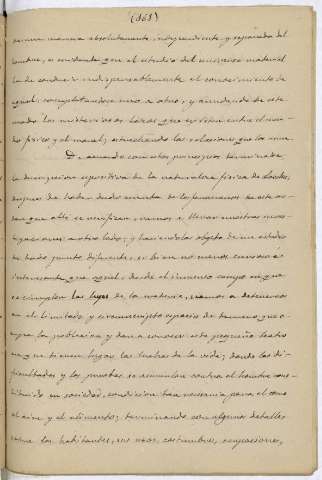 (168)
manera absolutamente independiente y separada del
hombre, es constante que el estudio del universo material
ha de conducir indispensablemente al conocimiento de
aquel; completandose uno a otro, y aunadose de este
modo los misteriosos lazos que existen entre el mundo
fisico y el moral; estrechando las relaciones que los unen.
De acuerdo con estos principios terminada
la descripcion expositiva de la naturaleza fisica de
despues de haber dado cuenta de los fenomenos de este orden
que alli se verifican, vamos a llevar nuestras
a otro lado; y haciendolas objeto de un estudio
de todo punto diferente, si bien no menos curioso e
interesante que aquel; desde el inmenso campo en que
se cumplen las leyes de la materia, vamos a detenernos
en el limitado y circunscripto espacio de terreno que
ocupa la poblacion y dar a conocer este pequeño teatro
en que tienen lugar las luchas de la vida; donde las
dificultades y las pruebas se acumulan contra el hombre
constituido en sociedad, condicion tan necesaria para el como
el aire y el alimento; terminando con algunos detalles
sobre los habitantes, sus usos, costumbres, ocupaciones,